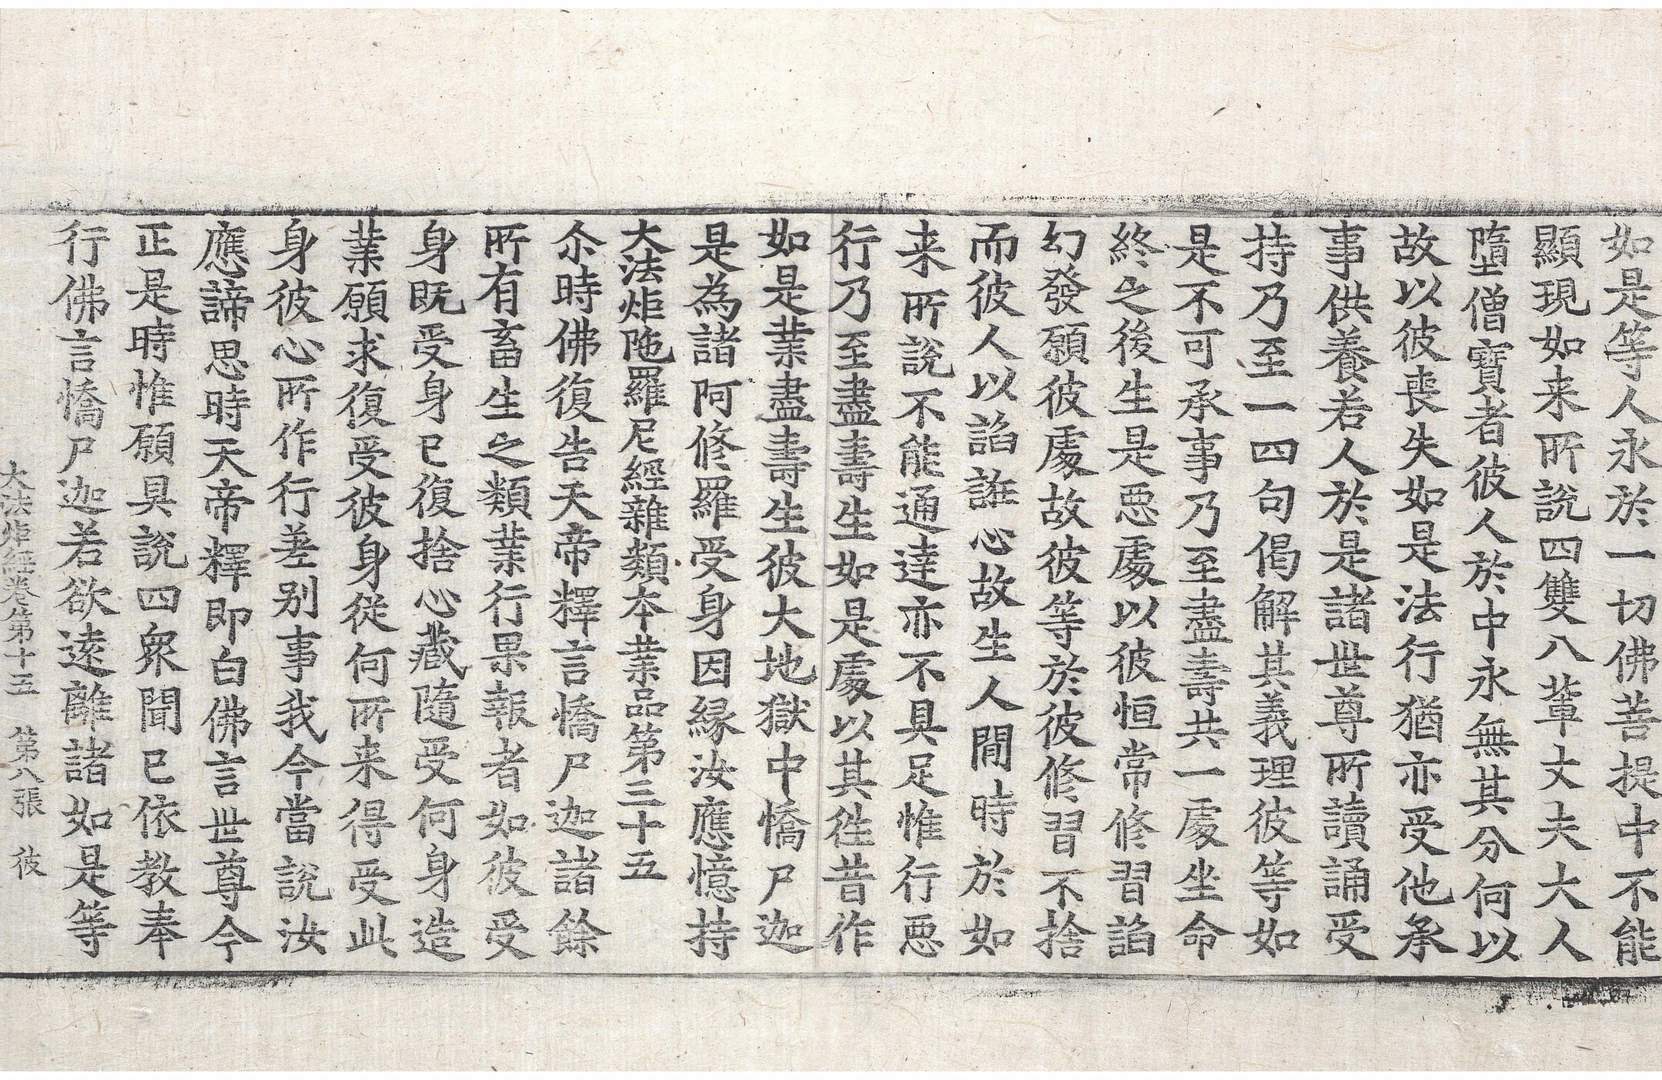 如是等人永於一切佛菩提中不能
顯現如来所說四雙八輩丈夫大人
墮僧寶者彼人於中永無其分何以
故以彼喪失如是法行猶亦受他承
事供養若人於是諸世尊所讀誦受
持乃至一四句偈解其義理彼等如
是不可承事乃至盡壽共一處坐命
終之後生是惡處以彼恒常修習諂
幻發願彼處故彼等於彼修習不捨
而彼人以諂誑心故生人間時於如
来所說不能通達亦不具足惟行惡
行乃至盡壽生如是處以其徃昔作
如是業盡壽生彼大地獄中憍尸迦
是為諸阿修羅受身因緣汝應憶持
大法炬陁羅尼經雜類本業品第三十五
尒時佛復告天帝釋言憍尸迦諸餘
所有畜生之類業行果報者如彼受
身既受身已復捨心藏隨受何身造
業願求復受彼身從何所来得受此
身彼心所作行差別事我今當說汝
應諦思時天帝釋即白佛言世尊今
正是時惟願具說四衆聞已依教奉
行佛言憍尸迦若欲遠離諸如是等
大法炬經卷第十五　第八張　彼